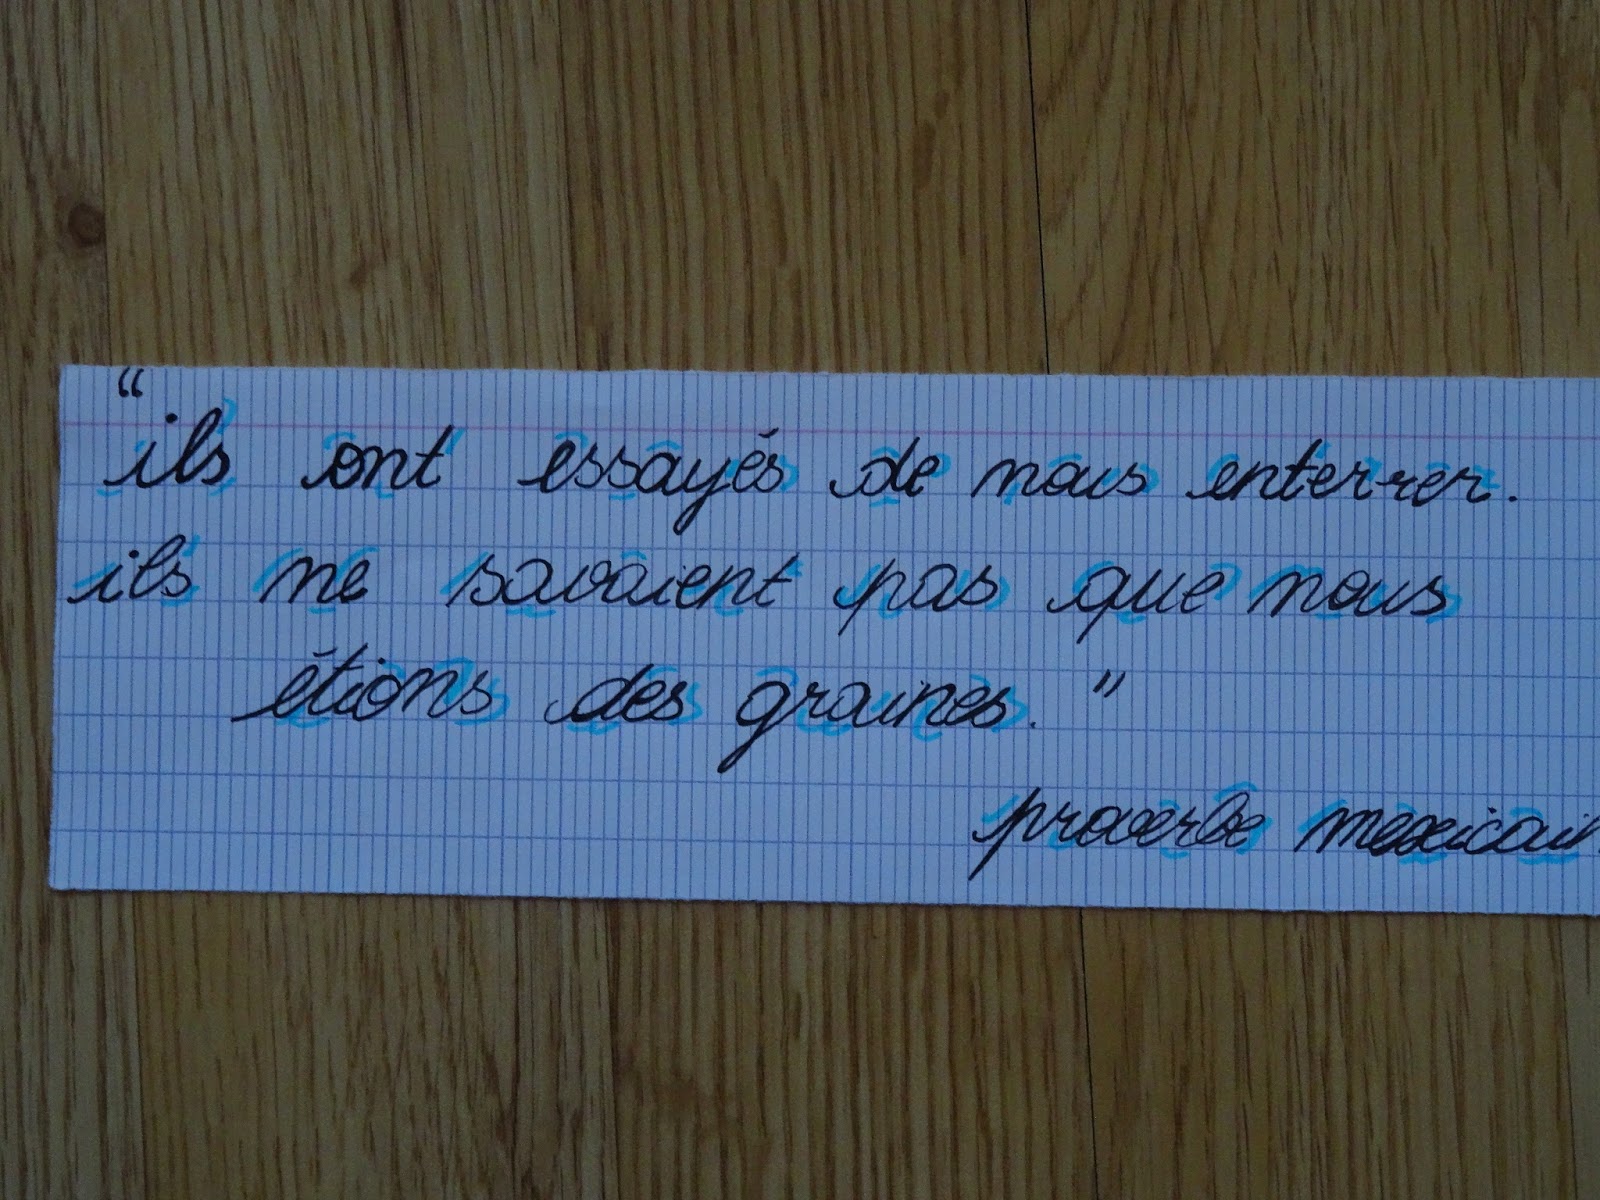 “ils ont essayés de nous enterrer.
ils ne savaient pas que nous
étions des graines.”
proverbe mexicain